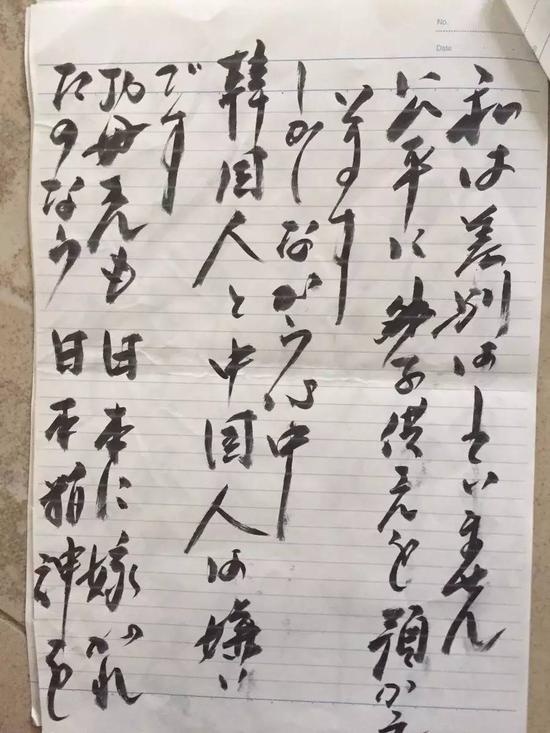 No.
Date
私は差別はしていません
公平に子供さんを預かっ
います
しかしながら心中
韓国人と中国人は嫌い
です
お母さんも日本に嫁がれ
たのなら日本精神を